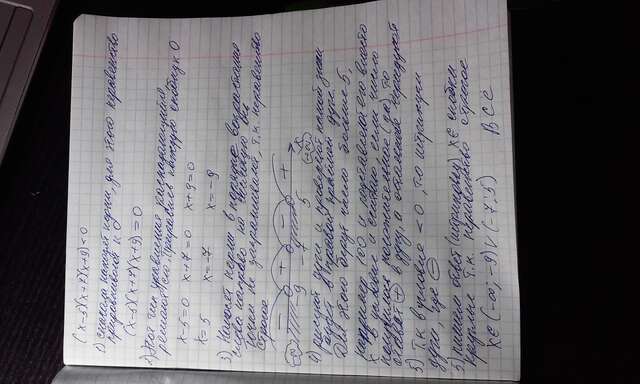 (x-5)(x+7)(x+9)<0
1) сначала находят корни, для этого неравенство
приравнивают к
(x-5)(x+7)(x+9)=0
2) Этот тип уравнения распадающийся
решают его, приравняв каждую скобку к 0
x-5=0 x+7=0 x+9=0
x=5 x=-7 x=-9
3) Наносят корни в порядке возрастания
слева направо на числовую ось
точки не закрашивают, т.к. неравенство
строгое
- + - +
-∞ -9 -7 5 x
+∞
4) рисуют дуги и проверяют какой знак
будет в правой крайней дуге.
Для этого берут число больше 5,
например 100 и подставляют его вместо
x в условие и считаю, если число
получилось положительное (да), то
ставят + в дугу, а остальные чередуют
5) Т.к. в условие <0, то штрихуем
дуги, где -
5) пишем ответ (штриховку) x∈ скобки
круглые т.к. неравенство строгое
x∈(-∞; -9)∨(-7; 5) ВСС